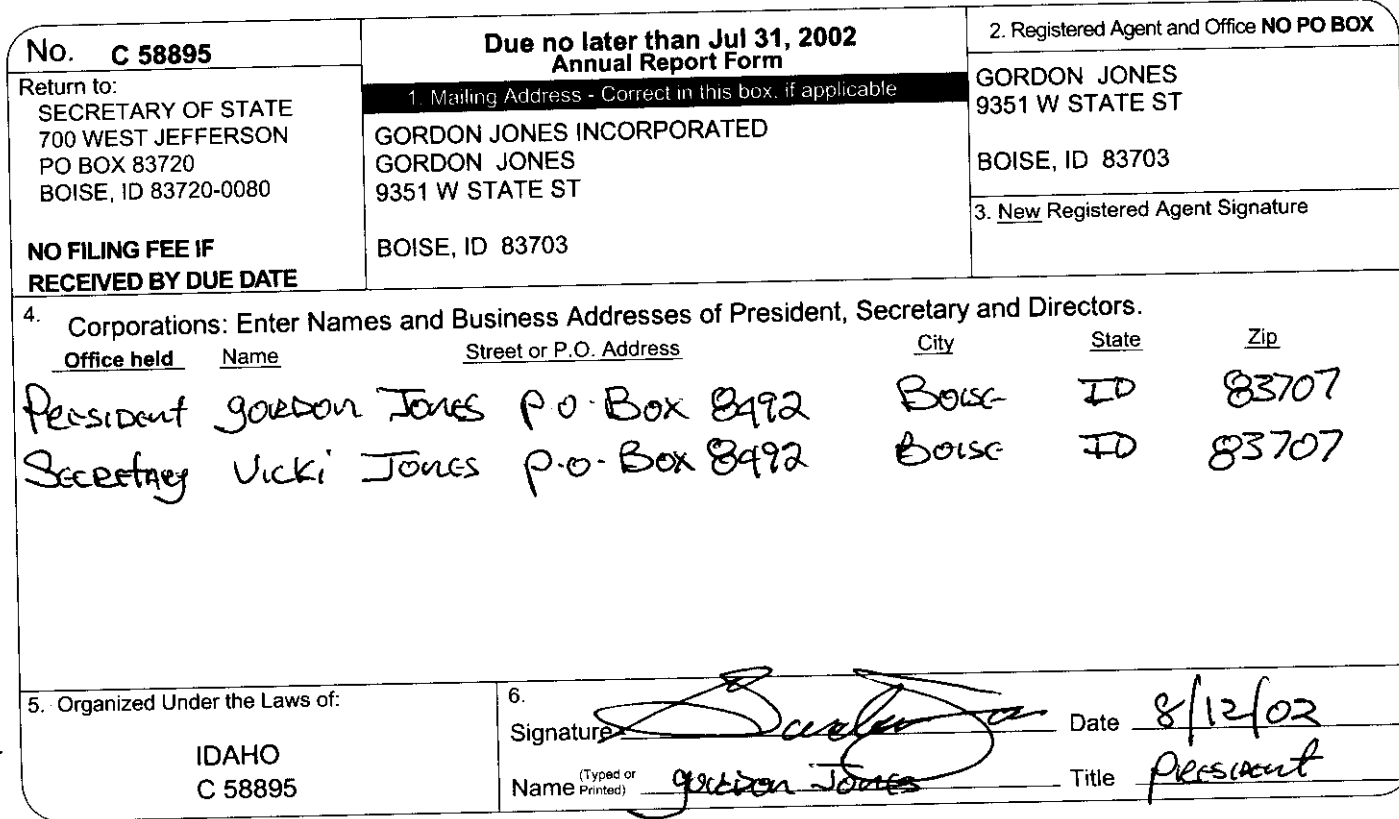 No. C 58895
Return to:
SECRETARY OF STATE
700 WEST JEFFERSON
PO BOX 83720
BOISE, ID 83720-0080
NO FILING FEE IF
RECEIVED BY DUE DATE
Due no later than Jul 31, 2002
Annual Report Form
1. Mailing Address - Correct in this box, if applicable
GORDON JONES INCORPORATED
GORDON JONES
9351 W STATE ST
BOISE, ID 83703
2. Registered Agent and Office NO PO BOX
GORDON JONES
9351 W STATE ST
BOISE, ID 83703
3. New Registered Agent Signature
4. Corporations: Enter Names and Business Addresses of President, Secretary and Directors.
Office held Name Street or P.O. Address City State Zip
President Gordon Jones P.O. Box 8492 Boise ID 83707
Secretary Vicki Jones P.O. Box 8492 Boise ID 83707
5. Organized Under the Laws of:
IDAHO
C 58895
6.
Signature Date 8/12/02
Name (Typed or Printed) Gordon Jones Title President